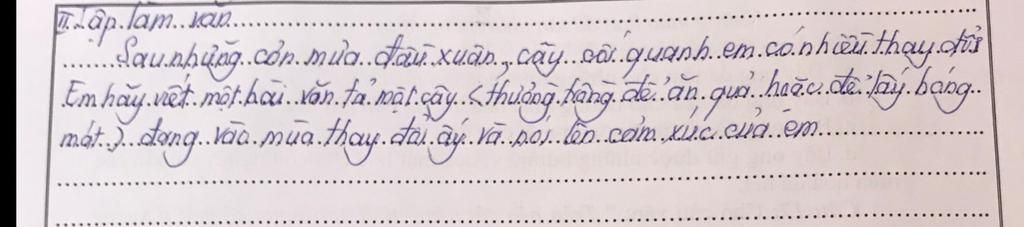 II. Tập làm văn
Sau những cơn mưa đầu xuân, cây cối quanh em có nhiều thay đổi
Em hãy viết một bài văn tả một cây (thường trồng để ăn quả hoặc để lấy bóng
mát) đang vào mùa thay đổi ấy và nói lên cảm xúc của em